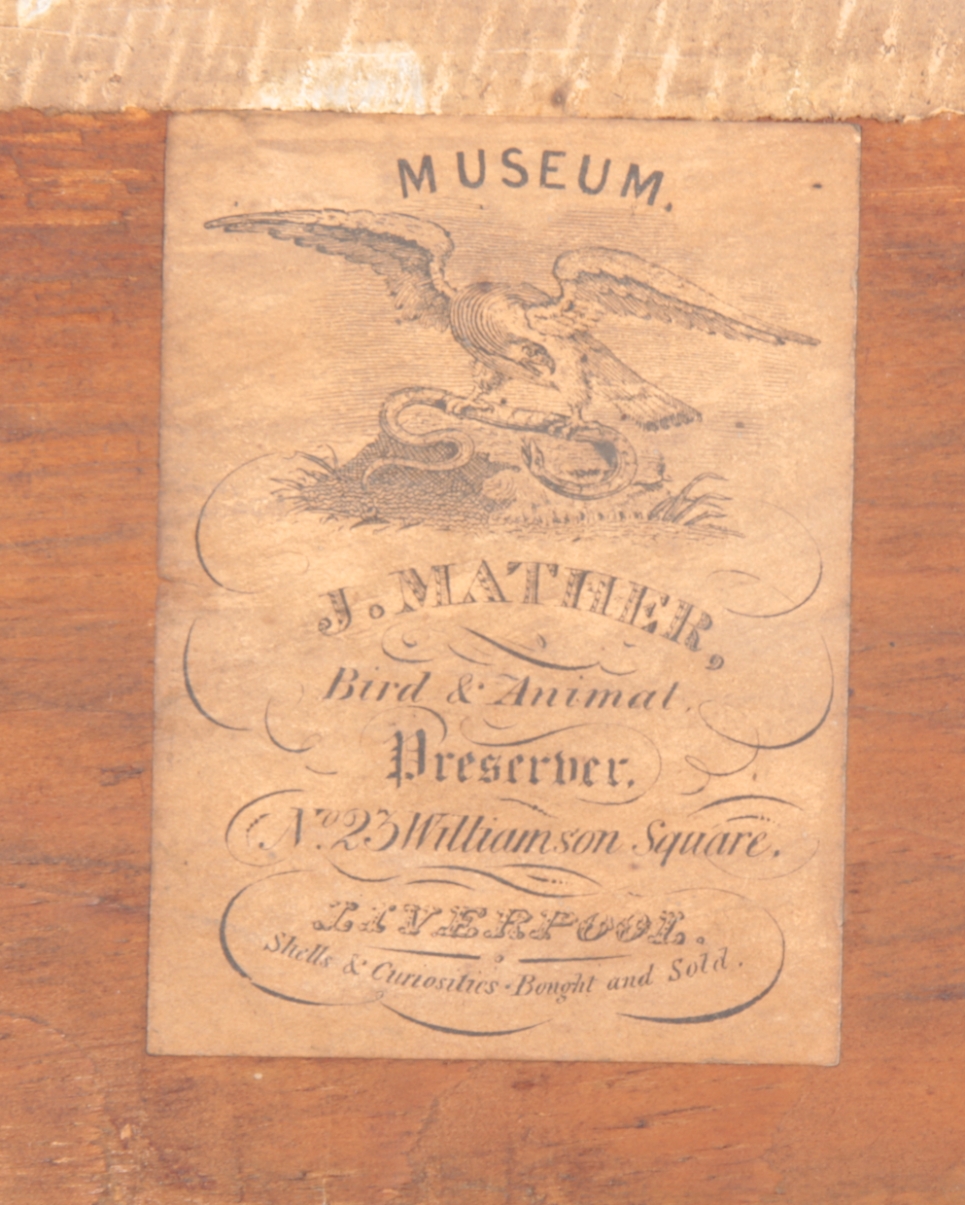 MUSEUM.
J. MATHER,
Bird & Animal.
Preserver.
No. 23 Williamson Square.
LIVERPOOL.
Shells & Curiosities - Bought and Sold.